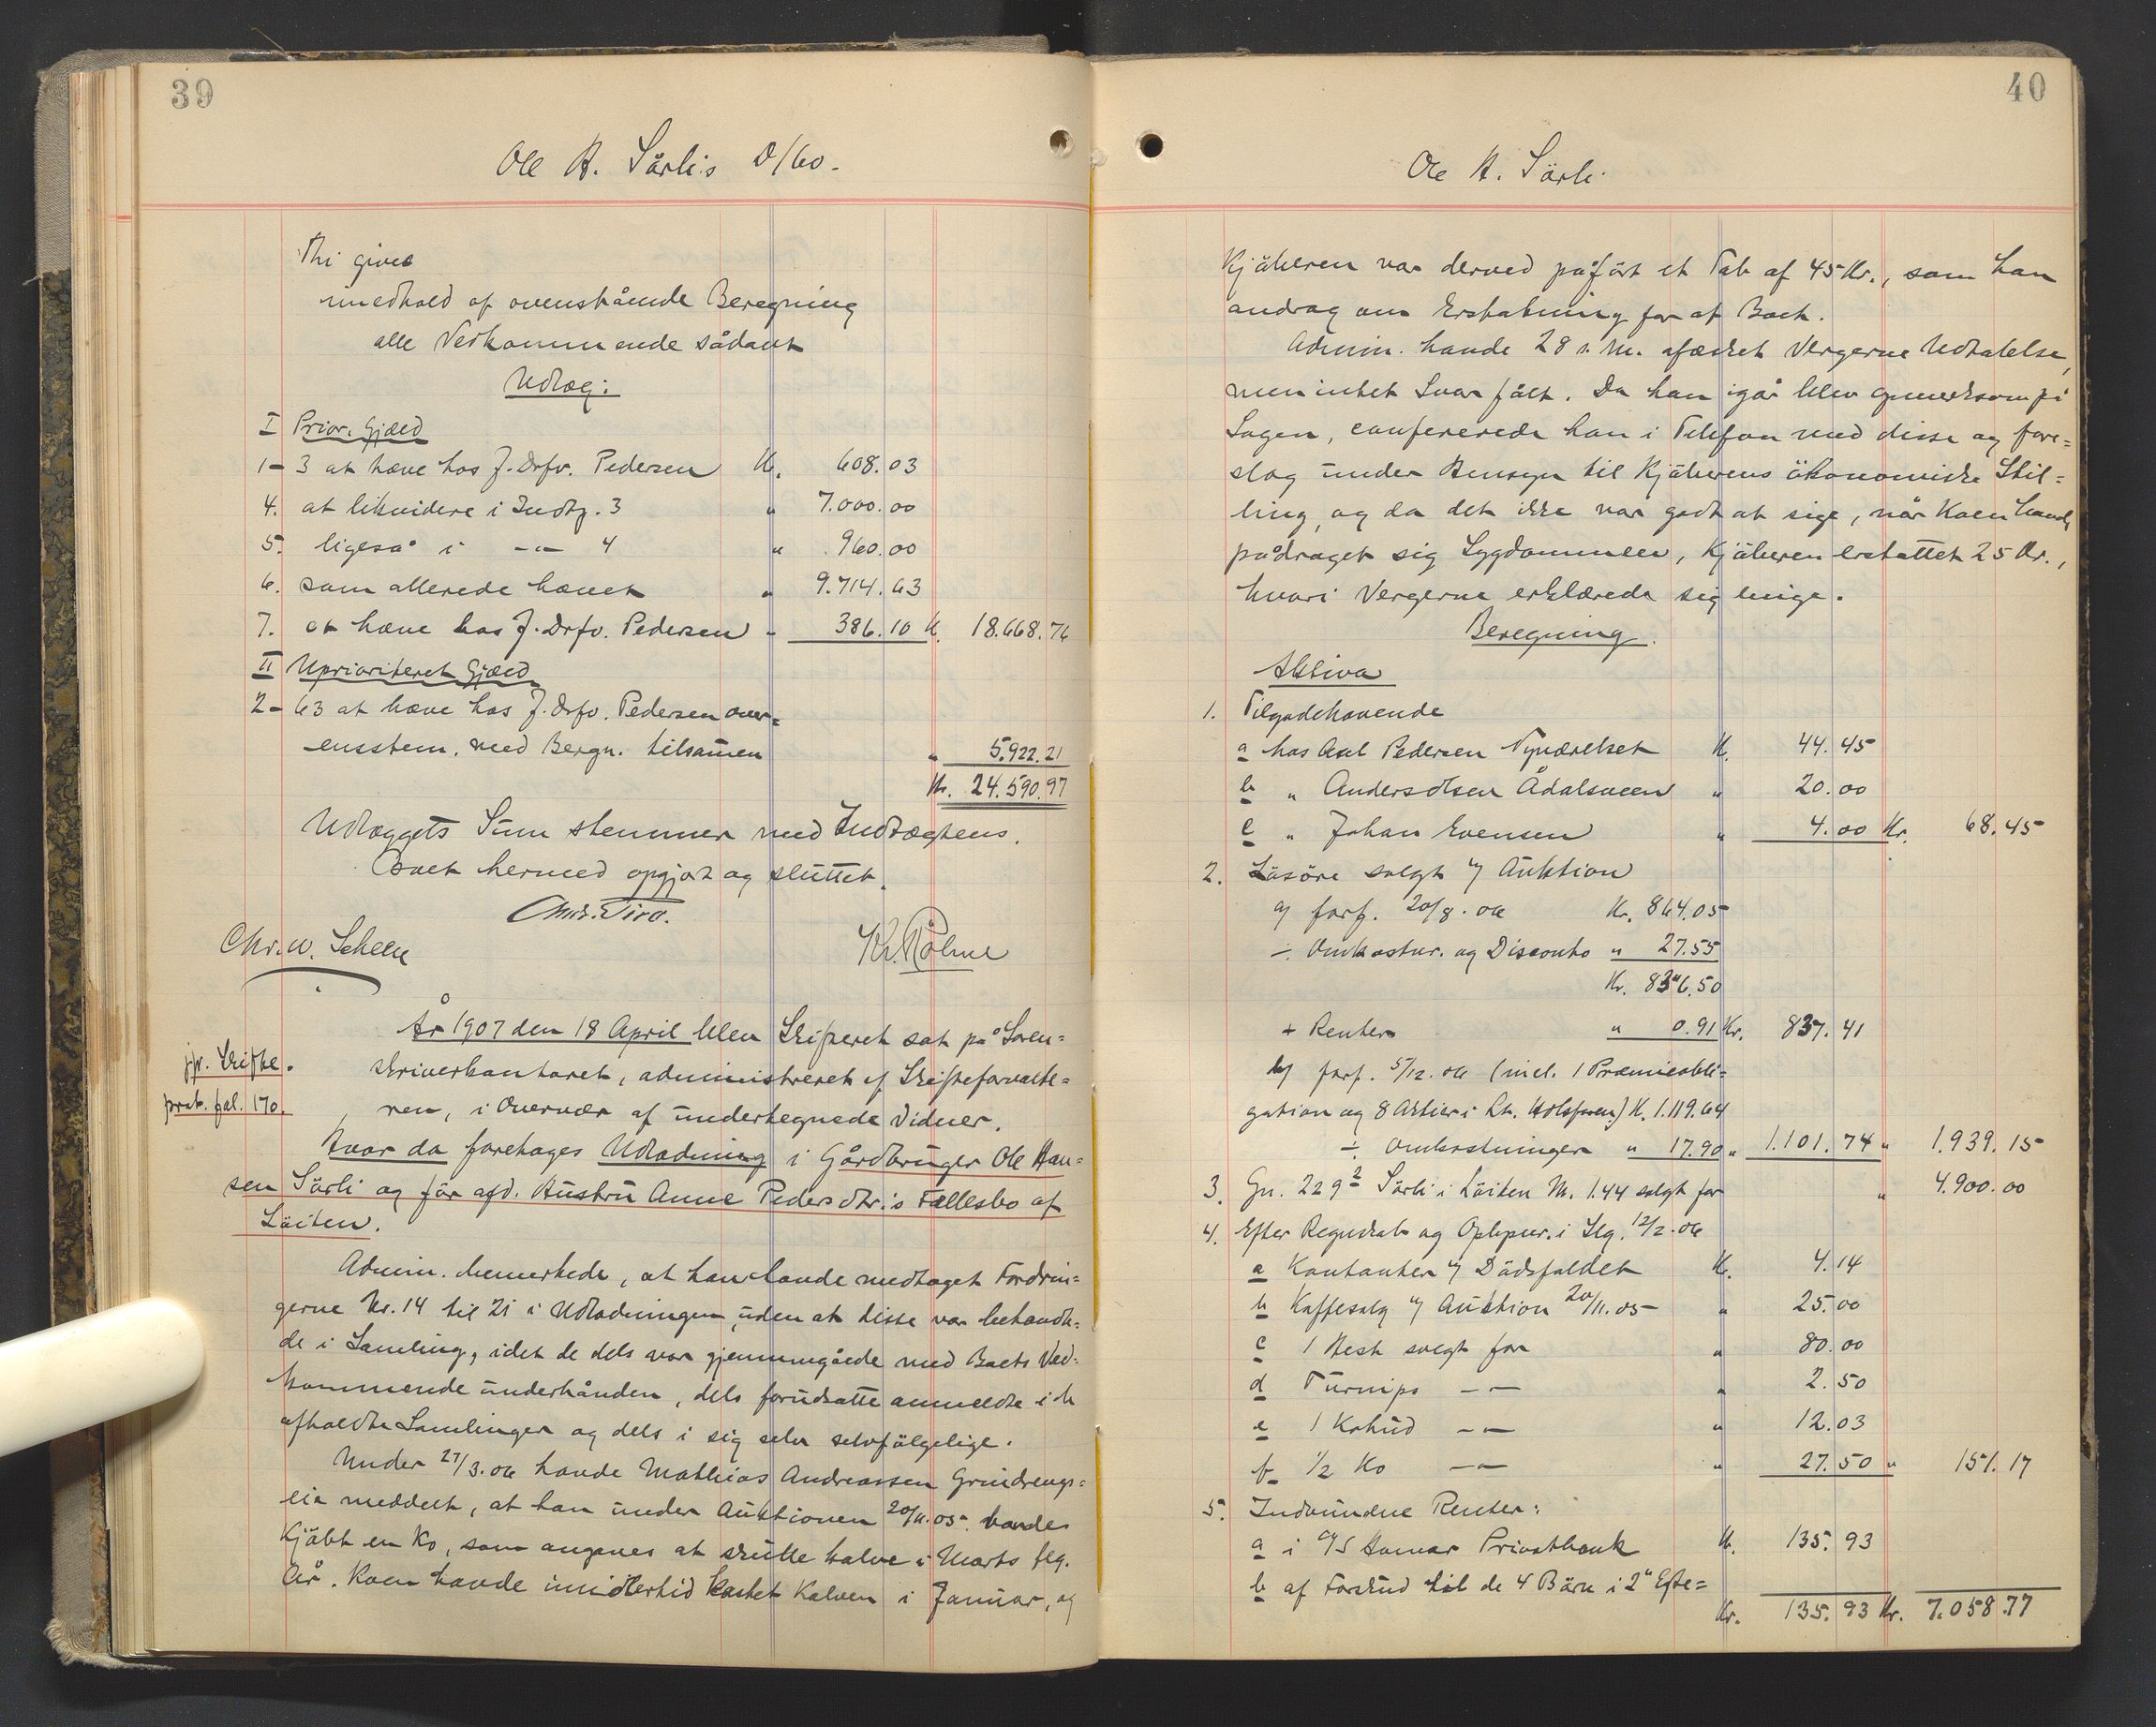 39
Ole H. Sårli's D/bo.
Thi gives
i medhold af ovenstående Beregning
alle Vedkommende sådant
Udlæg:
I Prior. Gjæld
1-3 at hæve hos J. Drfv. Pedersen Kr. 608.03
4. at likvidere i Indtg. 3 " 7.000.00
5. ligeså i -"- 4 " 960.00
6. som allerede hævet " 9.714.63
7. at hæve hos J. Drfv. Pedersen " 386.10 Kr. 18.668.76
II Uprioriteret Gjæld
2-63 at hæve hos J. Drfv. Pedersen over=
ensstem. med Bergn. tilsammen " 5.922.21
Kr. 24.590.97
Udlæggets Sum stemmer med Indtægtens.
Boet hermed opgjort og sluttet.
Chr. W. Scheen
År 1907 den 18 April blev Skifteret sat på Soren=
skriverkontoret, administreret af Skifteforvalte=
ren, i Overvær af undertegnede Vidner.
jfr. Skifte.
prot. fol. 170.
Hvor da foretages Udlodning i Gårdbruger Ole Han=
sen Sörli og för afd. Hustru Anne Pedersdtr.'s Fællesbo af
Löiten.
Admin. bemerkede, at han havde medtaget Fordrin=
gerne Nr. 14 til 21 i Udlodningen, uden at disse var behandle=
de i Samling, idet de dels var gjennemgåede med Boets Ved=
kommende underhånden, dels forudsatte anmeldte i de
afholdte Samlinger og dels i sig selv selvfölgelige.
Under 27/3.06 havde Mathias Andreassen Grindvengs=
eie meddelt, at han under Auktionen 20/11.05 havde
Kjöbt en Ko, som angaves at skulle kalve i Marts flg.
År. Koen havde imidlertid kastet Kalven i Januar, og
40
Ole H. Sörli
Kjöberen var derved påfört et Tab af 45 Kr., som han
androg om Erstatning for af Boet.
Admin. havde 28 s. M. afæsket Vergerne Udtalelse,
men intet Svar fått. Da han igår blev opmerksom på
Sagen, confererede han i Telefon med disse og fore=
slog under Hensyn til Kjöberens ökonomiske Stil=
ling, og da det ikke var godt at sige, når Koen havde
pådraget sig Sygdommen, Kjöberen erstattet 25 Kr.,
hvori Vergerne erklærede sig enige.
Beregning.
Aktiva
1. Tilgodehavende
a hos Axel Pedersen Nyværelset Kr. 44.45
b " Anders Olsen Ådalsveen " 20.00
c " Johan Evensen " 4.00 Kr. 68.45
2. Lösöre solgt v/ Auktion
a/ forf. 20/8.06 Kr. 864.05
÷ Omkostnr. og Disconto " 27.55
Kr. 836.50
+ Renter " 0.91 Kr. 837.41
b/ forf. 5/12.06 (incl. 1 Præmieobli=
gation og 8 Aktier i Lt. Holsfven.) Kr. 1.119.64
÷ Omkostninger " 17.90 " 1.101.74 " 1.939.15
3. Gn. 229² Sörli i Löiten M. 1.44 solgt for " 4.900.00
4. Efter Regnskab og Oplysn. i Slg. 12/2.06
a Kontanter v/ Dödsfaldet Kr. 4.14
b Kaffesalg v/ Auktion 20/11.05 " 25.00
c 1 Hest solgt for " 80.00
d Turnips -"- " 2.50
e 1 Kohud -"- " 12.03
f 1/2 Ko -"- " 27.50 " 151.17
5. Indvundne Renter:
a i A/S Hamar Privatbank Kr. 135.93
b af Forskud til de 4 Börn i 2" Egte=
Kr. 135.93 Kr. 7.058.77